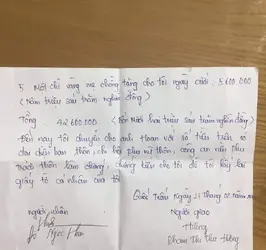 5 Một chỉ vàng mẹ chồng tặng cho tôi ngày cưới : 5.600.000
(Năm triệu sáu trăm nghìn đồng)
Tổng : 42.600.000 (Bốn mươi hai triệu sáu trăm nghìn đồng)
Đến nay tôi chuyển cho anh Hoan với số tiền trên số
dư chia bạn thân, chi hộ phụ nữ thôn, công an
thôn làm chứng, chứng kiến cho tôi để tôi lấy lại
giấy tờ cá nhân của tôi
Quốc Trấn Ngày 21 tháng 02 năm
Người nhận Người giao
Hường
Ngọc Phạm Thị Thu Hường